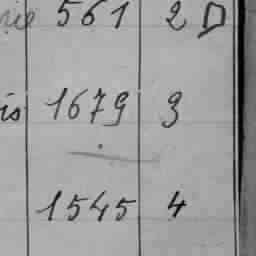 561 2 D
is 1679 3
1545 4